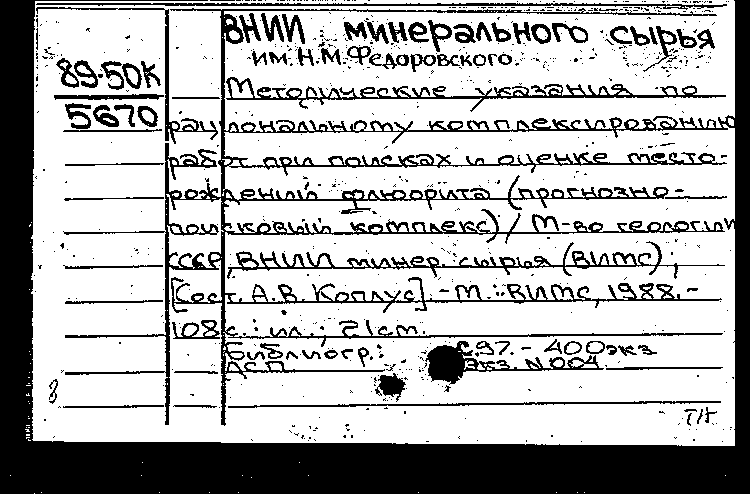 ВНИИ минерального сырья
им. Н.М. Федоровского.
89-50К
5670
Методические указания по
рациональному комплексированию
работ при поисках и оценке место-
рождений флюорита (прогнозно-
поисковый комплекс) / М-во геологии
СССР, ВНИИ минер. сырья (ВИМС);
[Сост. А.В. Коплус]. - М.: ВИМС, 1988. -
108 с.: ил.; 21 см.
Библиогр.: с.97. - 400 экз
ДСП. Экз. N 004.